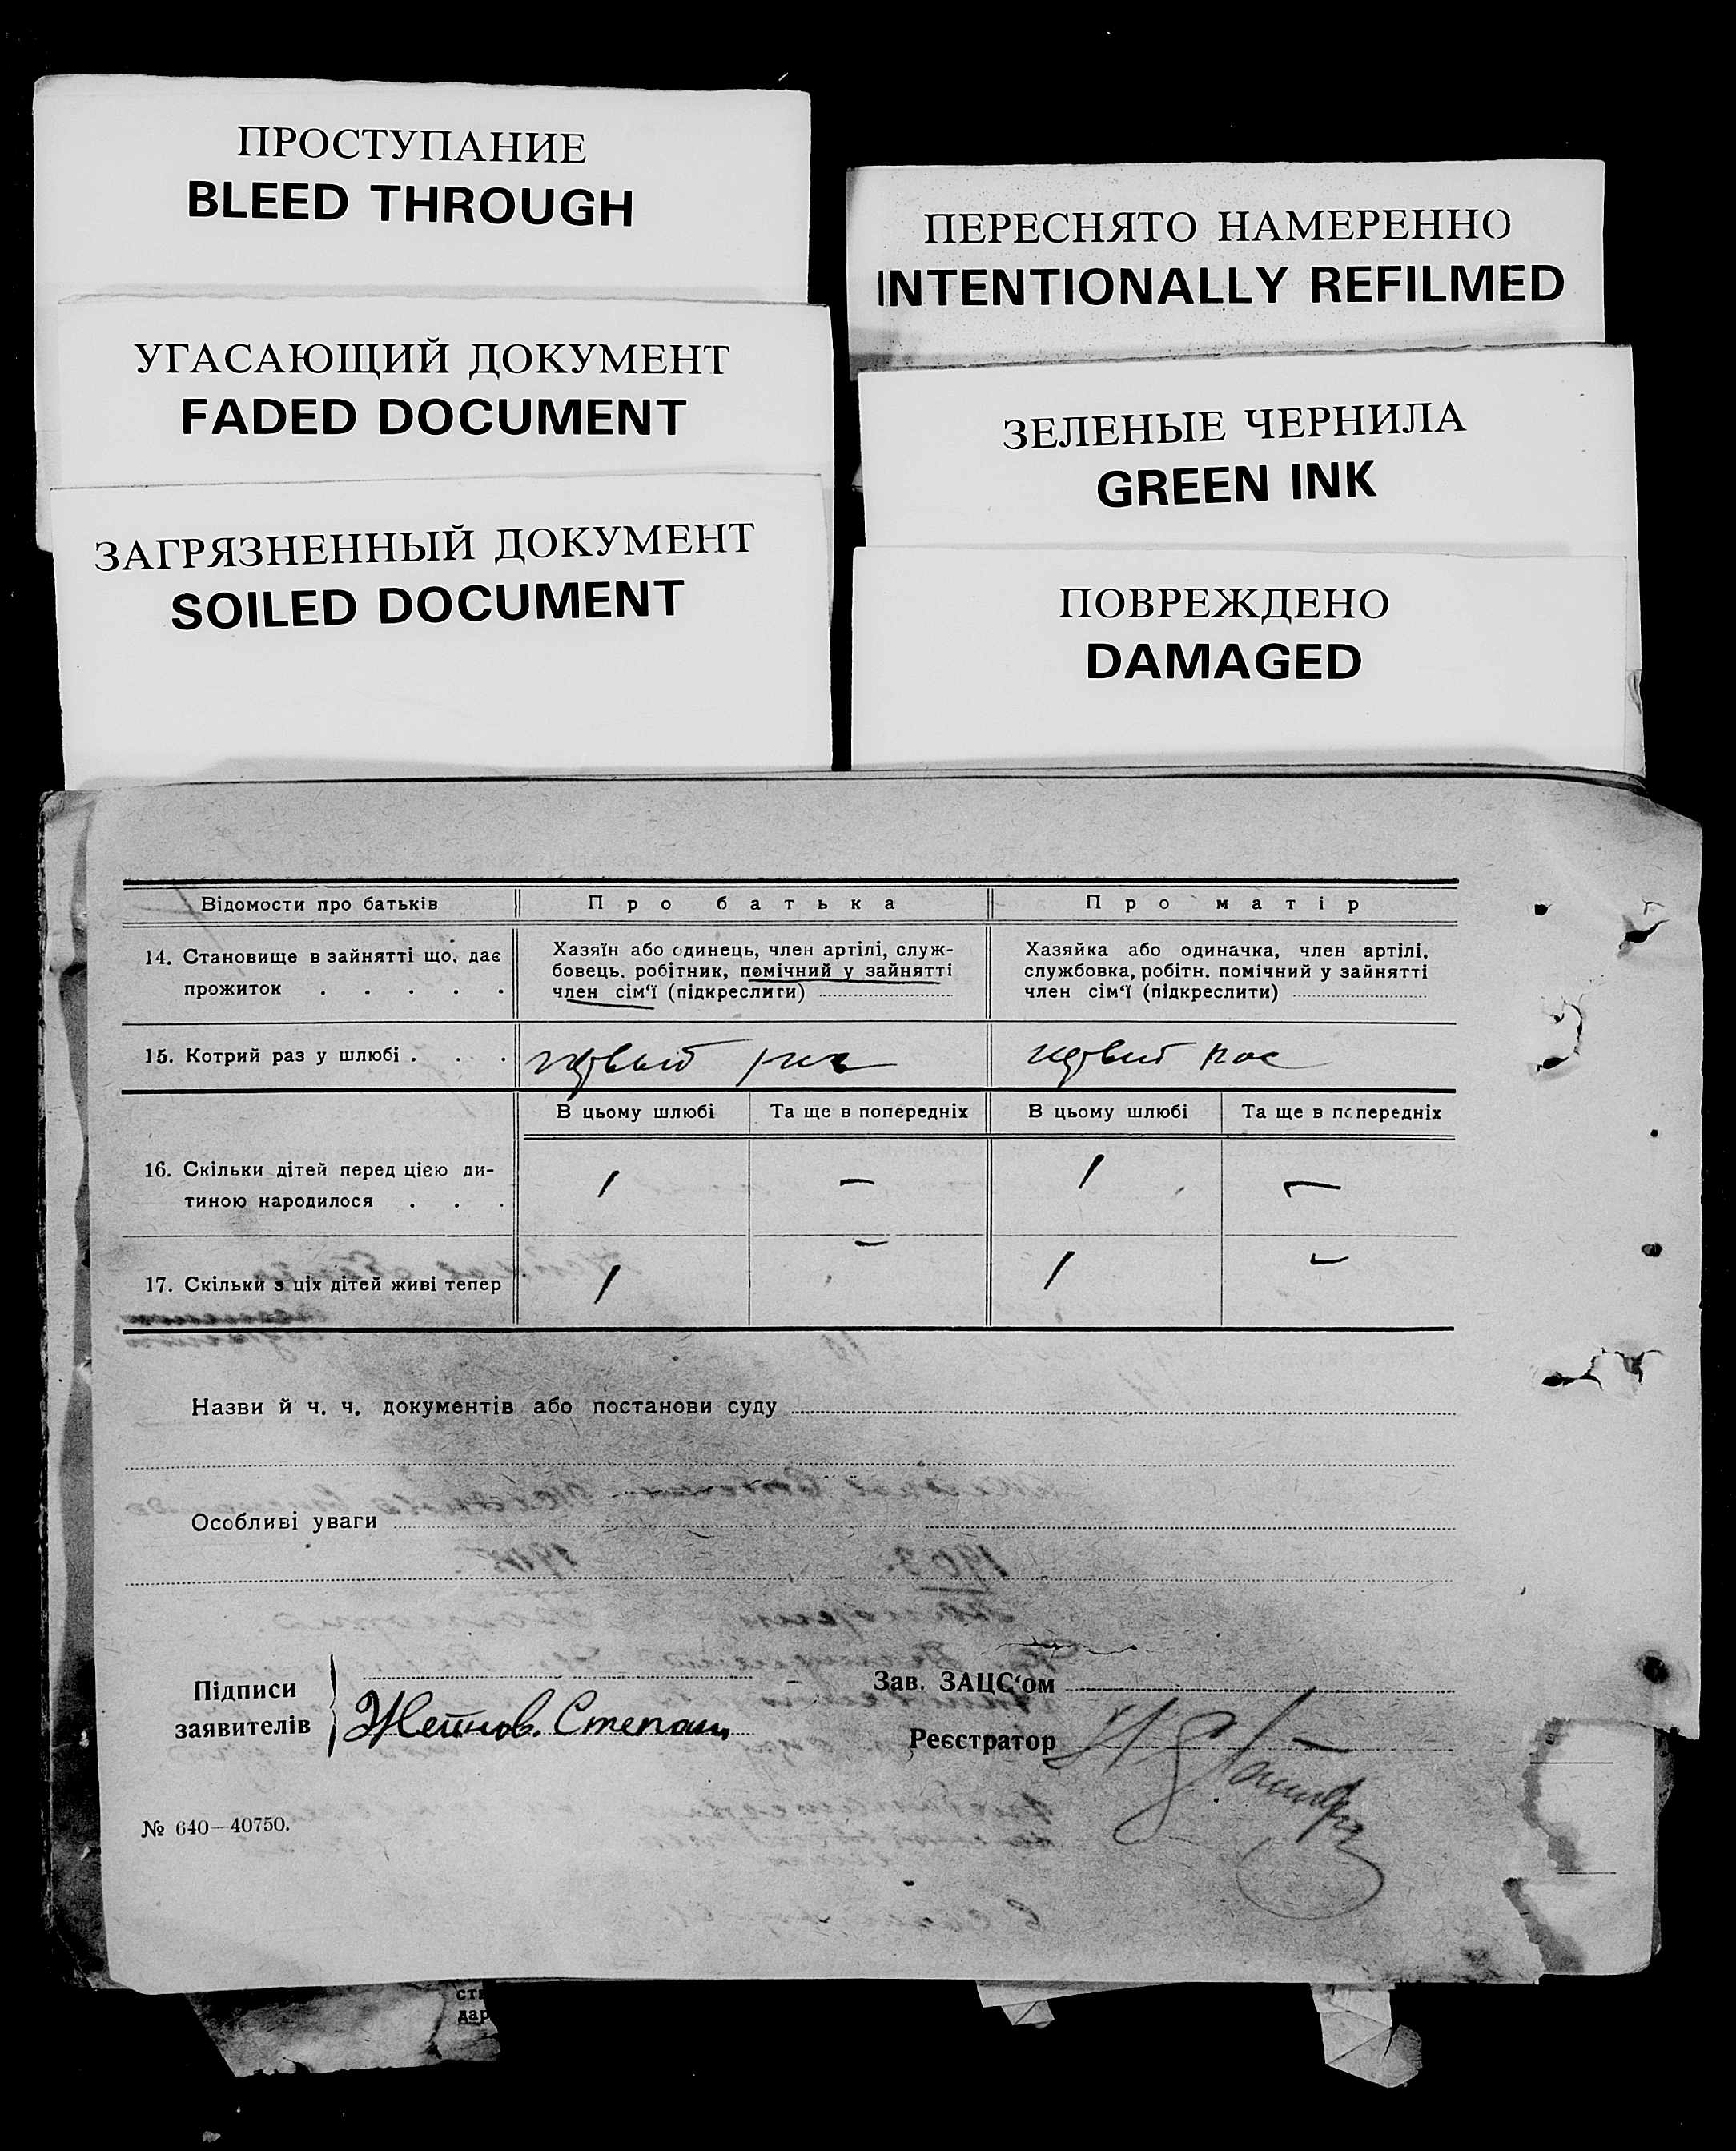 ПРОСТУПАНИЕ
BLEED THROUGH
УГАСАЮЩИЙ ДОКУМЕНТ
FADED DOCUMENT
ЗАГРЯЗНЕННЫЙ ДОКУМЕНТ
SOILED DOCUMENT
ПЕРЕСНЯТО НАМЕРЕННО
INTENTIONALLY REFILMED
ЗЕЛЕНЫЕ ЧЕРНИЛА
GREEN INK
ПОВРЕЖДЕНО
DAMAGED
Відомости про батьків
Про батька
Про матір
14. Становище в зайнятті що, дає
прожиток . . . . .
Хазяїн або одинець, член артілі, служ-
бовець. робітник, помічний у зайнятті
член сім‘ї (підкреслити)
Хазяйка або одиначка, член артілі,
службовка, робітн. помічний у зайнятті
член сім‘ї (підкреслити)
15. Котрий раз у шлюбі . . .
В цьому шлюбі
Та ще в попередніх
В цьому шлюбі
Та ще в попередніх
16. Скільки дітей перед цією ди-
тиною народилося . . .
1
—
1
—
17. Скільки з ціх дітей живі тепер
1
—
1
—
Назви й ч. ч. документів або постанови суду
Особливі уваги
Підписи
заявителів
Степан
Зав. ЗАЦС‘ом
Реєстратор
№ 640—40750.